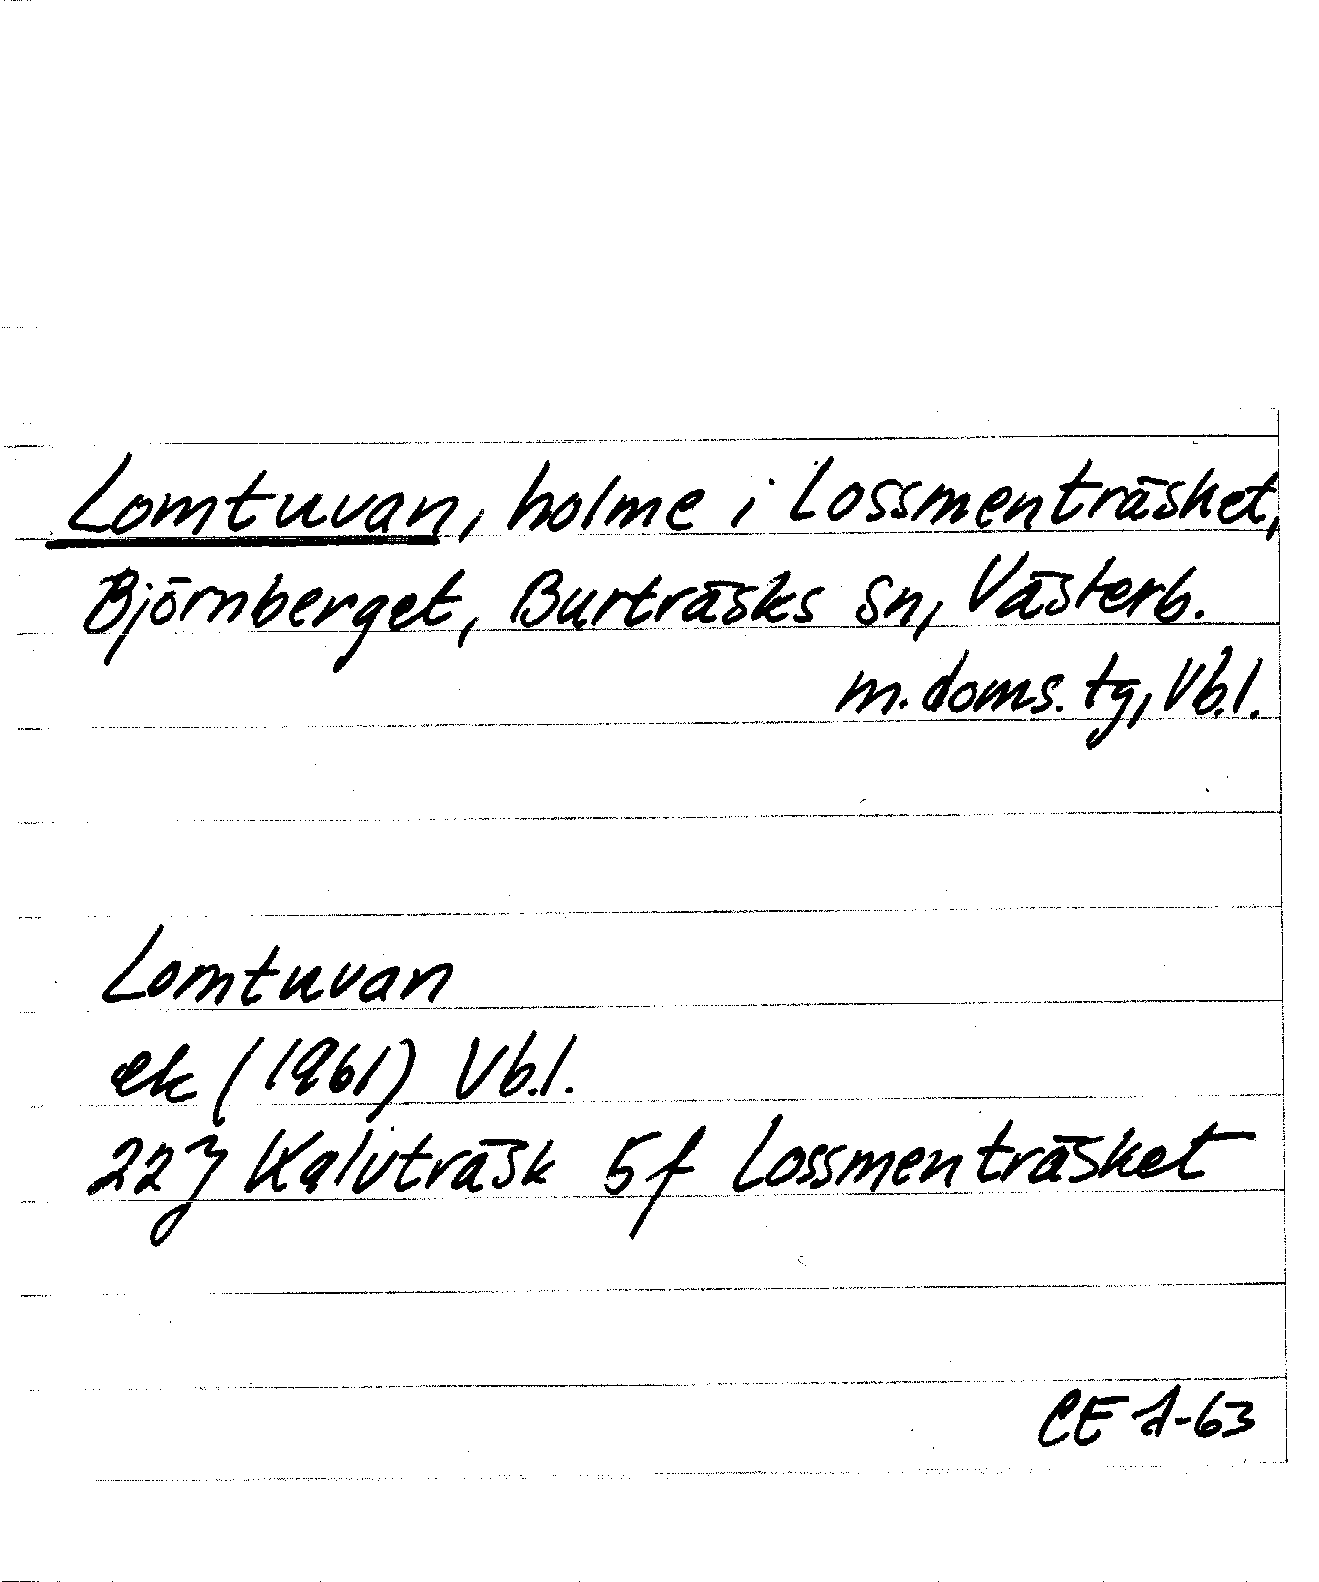 Lomtuvan, holme i Lossmenträsket,
Björnberget, Burträsks sn, Västerb.
m. doms. tg, Vb.l.
Lomtuvan
ek (1961) Vb.l.
22J Kalvträsk 5f Lossmenträsket
CE -63